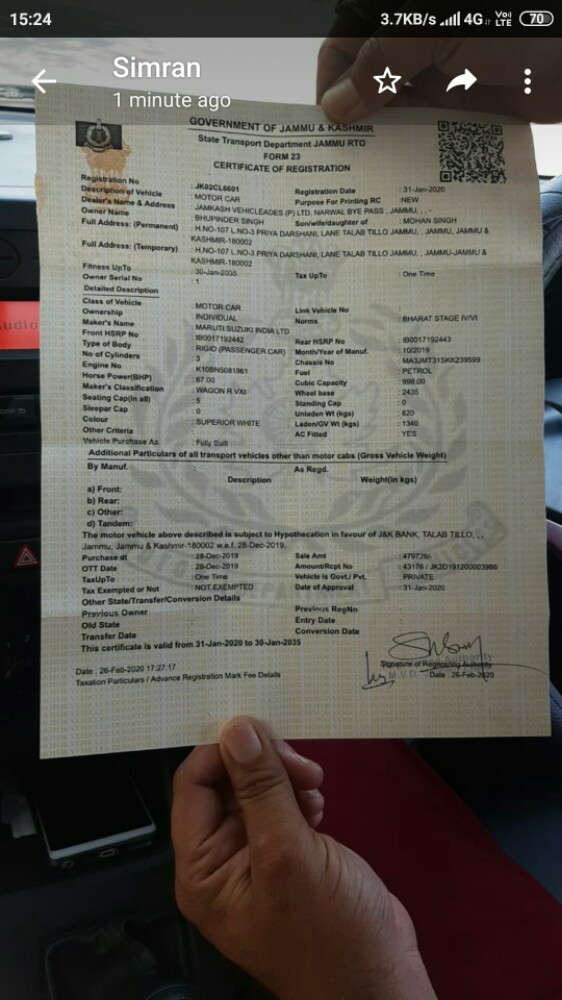 15:24
3.7KB/s 4G VoLTE 70
Simran
1 minute ago
GOVERNMENT OF JAMMU & KASHMIR
State Transport Department JAMMU RTO
FORM 23
CERTIFICATE OF REGISTRATION
Registration No : JK02CL6601 Registration Date : 31-Jan-2020
Description of Vehicle : MOTOR CAR Purpose For Printing RC : NEW
Dealer's Name & Address : JAMKASH VEHICLEADES (P) LTD, NARWAL BYE PASS , JAMMU, , , -
Owner Name : BHUPINDER SINGH Son/wife/daughter of : MOHAN SINGH
Full Address: (Permanent) : H.NO-107 L.NO-3 PRIYA DARSHANI, LANE TALAB TILLO JAMMU, , JAMMU, JAMMU &
KASHMIR-180002
Full Address: (Temporary) : H.NO-107 L.NO-3 PRIYA DARSHANI, LANE TALAB TILLO JAMMU, , JAMMU-JAMMU &
KASHMIR-180002
Fitness UpTo : 30-Jan-2035 Tax UpTo : One Time
Owner Serial No : 1
Detailed Description
Class of Vehicle : MOTOR CAR Link Vehicle No
Ownership : INDIVIDUAL Norms : BHARAT STAGE IV/VI
Maker's Name : MARUTI SUZUKI INDIA LTD
Front HSRP No : IB0017192442 Rear HSRP No : IB0017192443
Type of Body : RIGID (PASSENGER CAR) Month/Year of Manuf. : 10/2019
No of Cylinders : 3 Chassis No : MA3JMT31SKK239599
Engine No : K10BN5081961 Fuel : PETROL
Horse Power(BHP) : 67.00 Cubic Capacity : 998.00
Maker's Classification : WAGON R VXI Wheel base : 2435
Seating Cap(in all) : 5 Standing Cap : 0
Sleepar Cap : 0 Unladen Wt (kgs) : 820
Colour : SUPERIOR WHITE Laden/GV Wt (kgs) : 1340
Other Criteria AC Fitted : YES
Vehicle Purchase As : Fully Built
Additional Particulars of all transport vehicles other than motor cabs (Gross Vehicle Weight)
By Manuf. : As Regd.
Description Weight(in kgs)
a) Front:
b) Rear:
c) Other:
d) Tandem:
The motor vehicle above described is subject to Hypothecation in favour of J&K BANK, TALAB TILLO, , ,
Jammu, Jammu & Kashmir-180002 w.e.f. 28-Dec-2019.
Purchase dt : 28-Dec-2019 Sale Amt : 479728/-
OTT Date : 28-Dec-2019 Amount/Rcpt No : 43176 / JK2D191200003986
TaxUpTo : One Time Vehicle is Govt./ Pvt. : PRIVATE
Tax Exempted or Not : NOT EXEMPTED Date of Approval : 31-Jan-2020
Other State/Transfer/Conversion Details
Previous Owner Previous RegNo
Old State Entry Date
Transfer Date Conversion Date
This certificate is valid from 31-Jan-2020 to 30-Jan-2035
Signature of Registering Authority
Date : 26-Feb-2020 17:27:17 Date : 26-Feb-2020
Taxation Particulars / Advance Registration Mark Fee Details